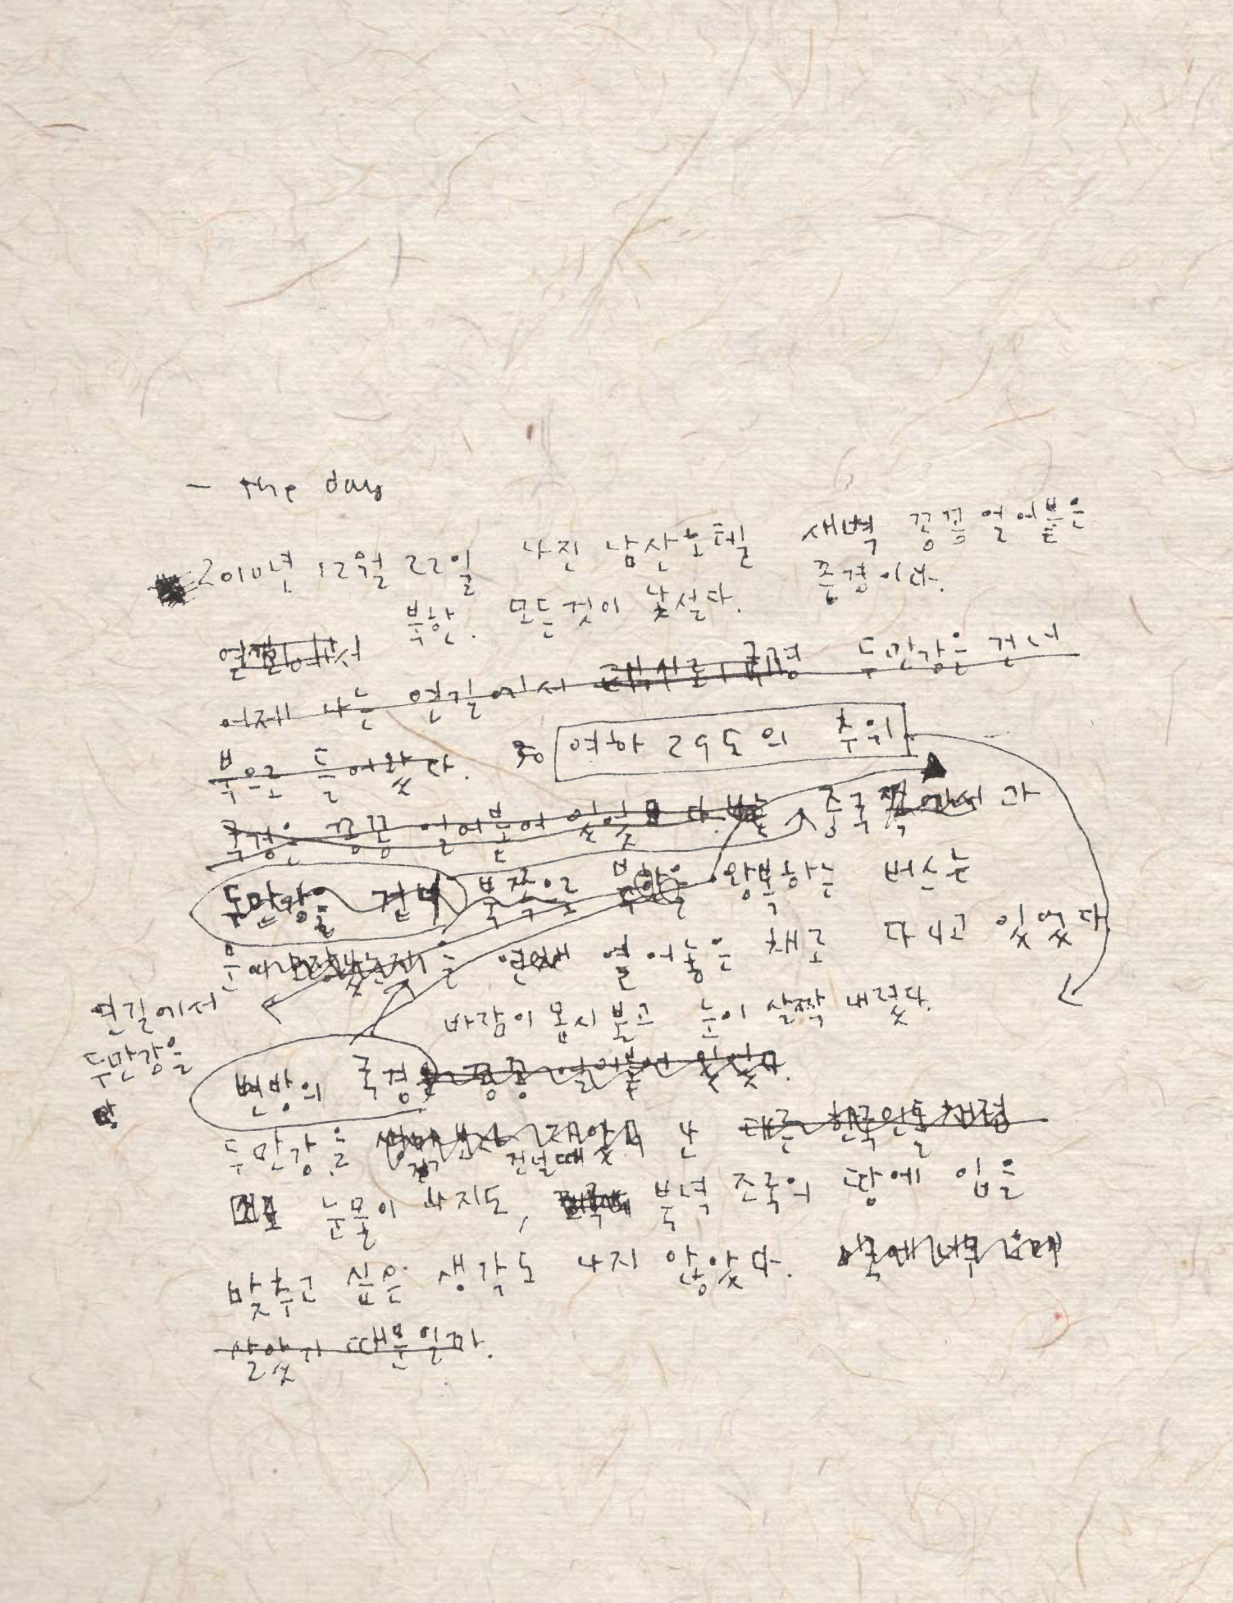 - the day
2010년 12월 22일 나진 남산호텔 새벽 꽁꽁 얼어붙은
북한. 모든것이 낯설다. 풍경이다.
어제 나는 연길에서 두만강을 건너
북으로 들어왔다. 영하 29도의 추위
국경은 꽁꽁 얼어붙어 있었다. 중국 과
두만강을 건너 북쪽으로 왕복하는 버스는
문 열어놓은 채로 다니고 있었다
연길에서
두만강을
바람이 몹시 불고 눈이 살짝 내렸다.
변방의 국경 꽁꽁 얼어붙어 있었다.
두만강을 건널때 난 다른 한국인들처럼
눈물이 나지도, 북녘 조국의 땅에 입을
맞추고 싶은 생각도 나지 않았다.
살았기 때문일까.